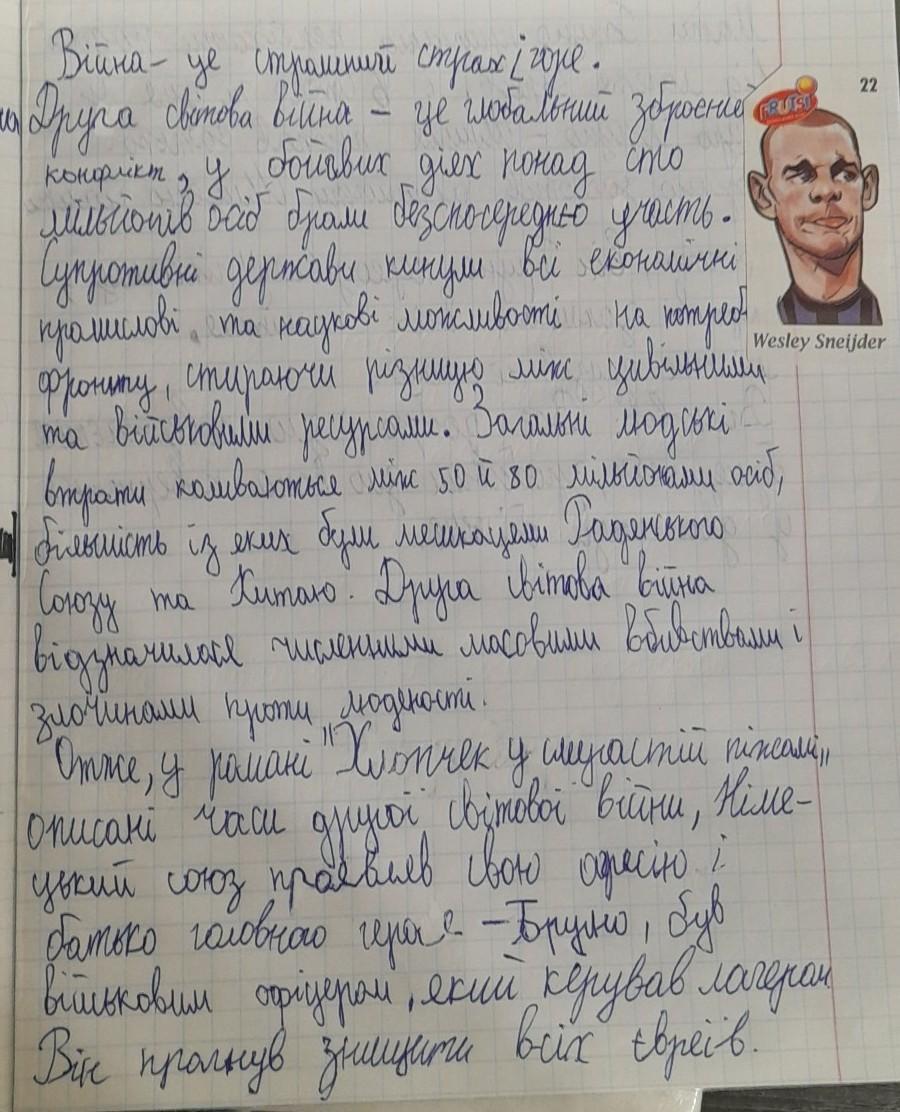 Війна - це страшний страх і горе.
Друга світова війна - це глобальний збройний
22
FRUTSI
конфлікт, у бойових діях понад сто
мільйонів осіб брали безспосередньо участь.
Супротивні держави кинули всі економічні
промислові, та наукові можливості на потреб
Wesley Sneijder
фронту, стираючи різницю між цивільними
та військовими ресурсами. Загальні людські
втрати коливаються між 50 й 80 мільйонами осіб,
більшість із яких були мешканцями Радянського
Союзу та Китаю. Друга світова війна
відзначилася численними масовими вбивствами і
злочинами проти людяності.
Отже, у романі "Хлопчек у смугастій піжамі"
описані часи другої світової війни, Німе-
цький союз проявляв свою агресію і
батько головного героя - Бруно, був
військовим офіцером, який керував лагерем
Він прагнув знищити всіх євреїв.